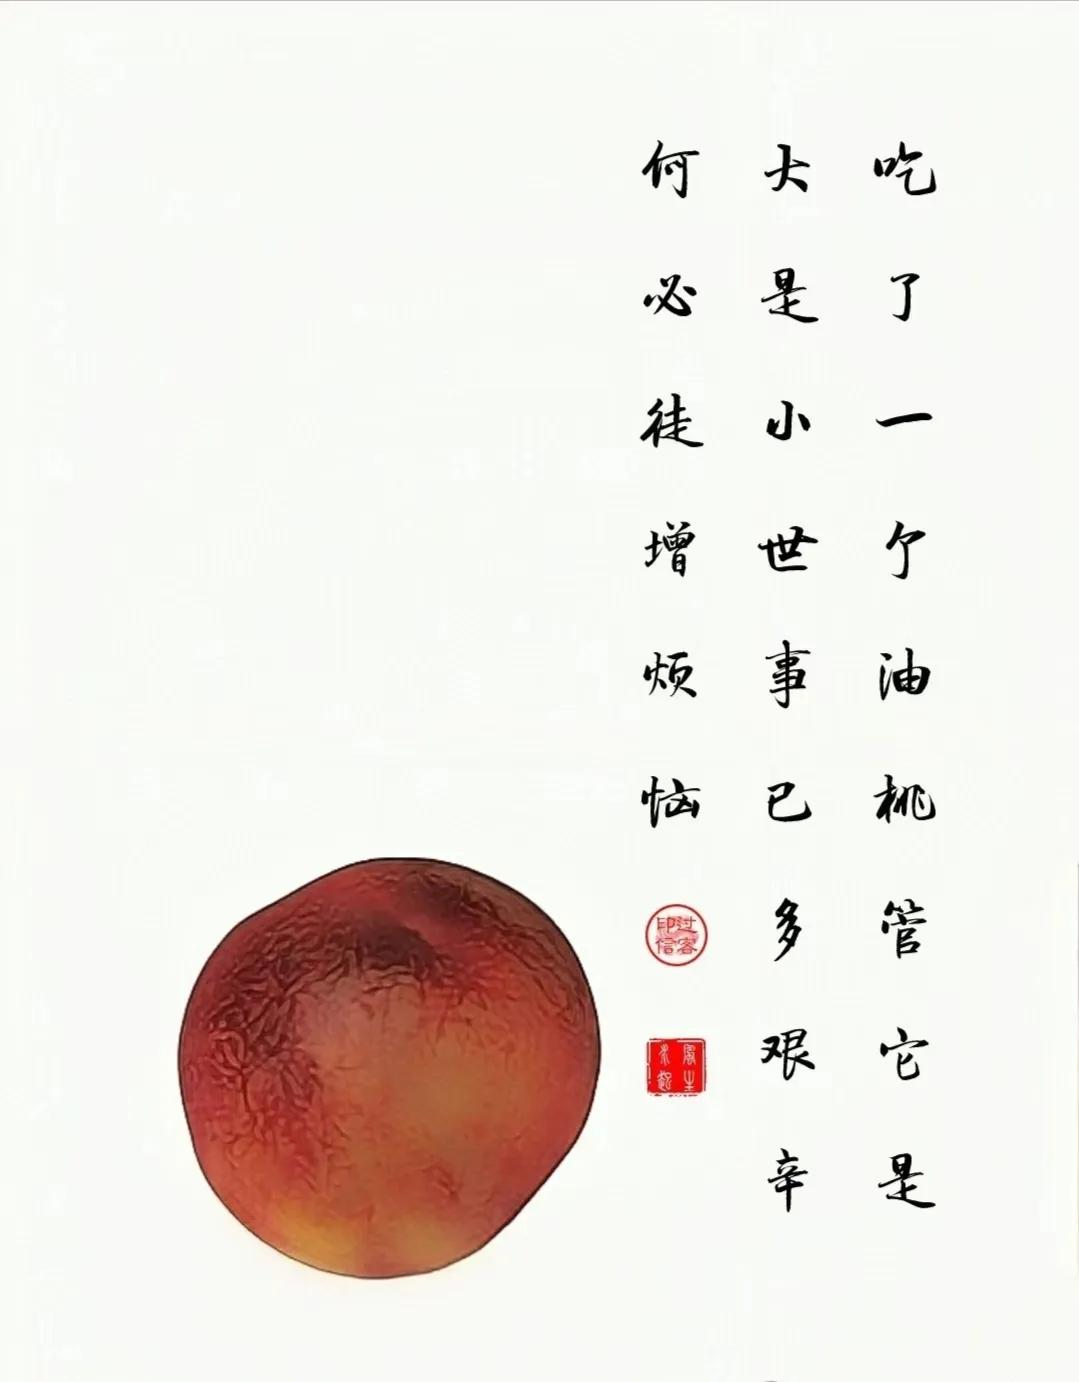 吃了一个油桃管它是
大是小世事已多艰辛
何必徒增烦恼
过客
印信